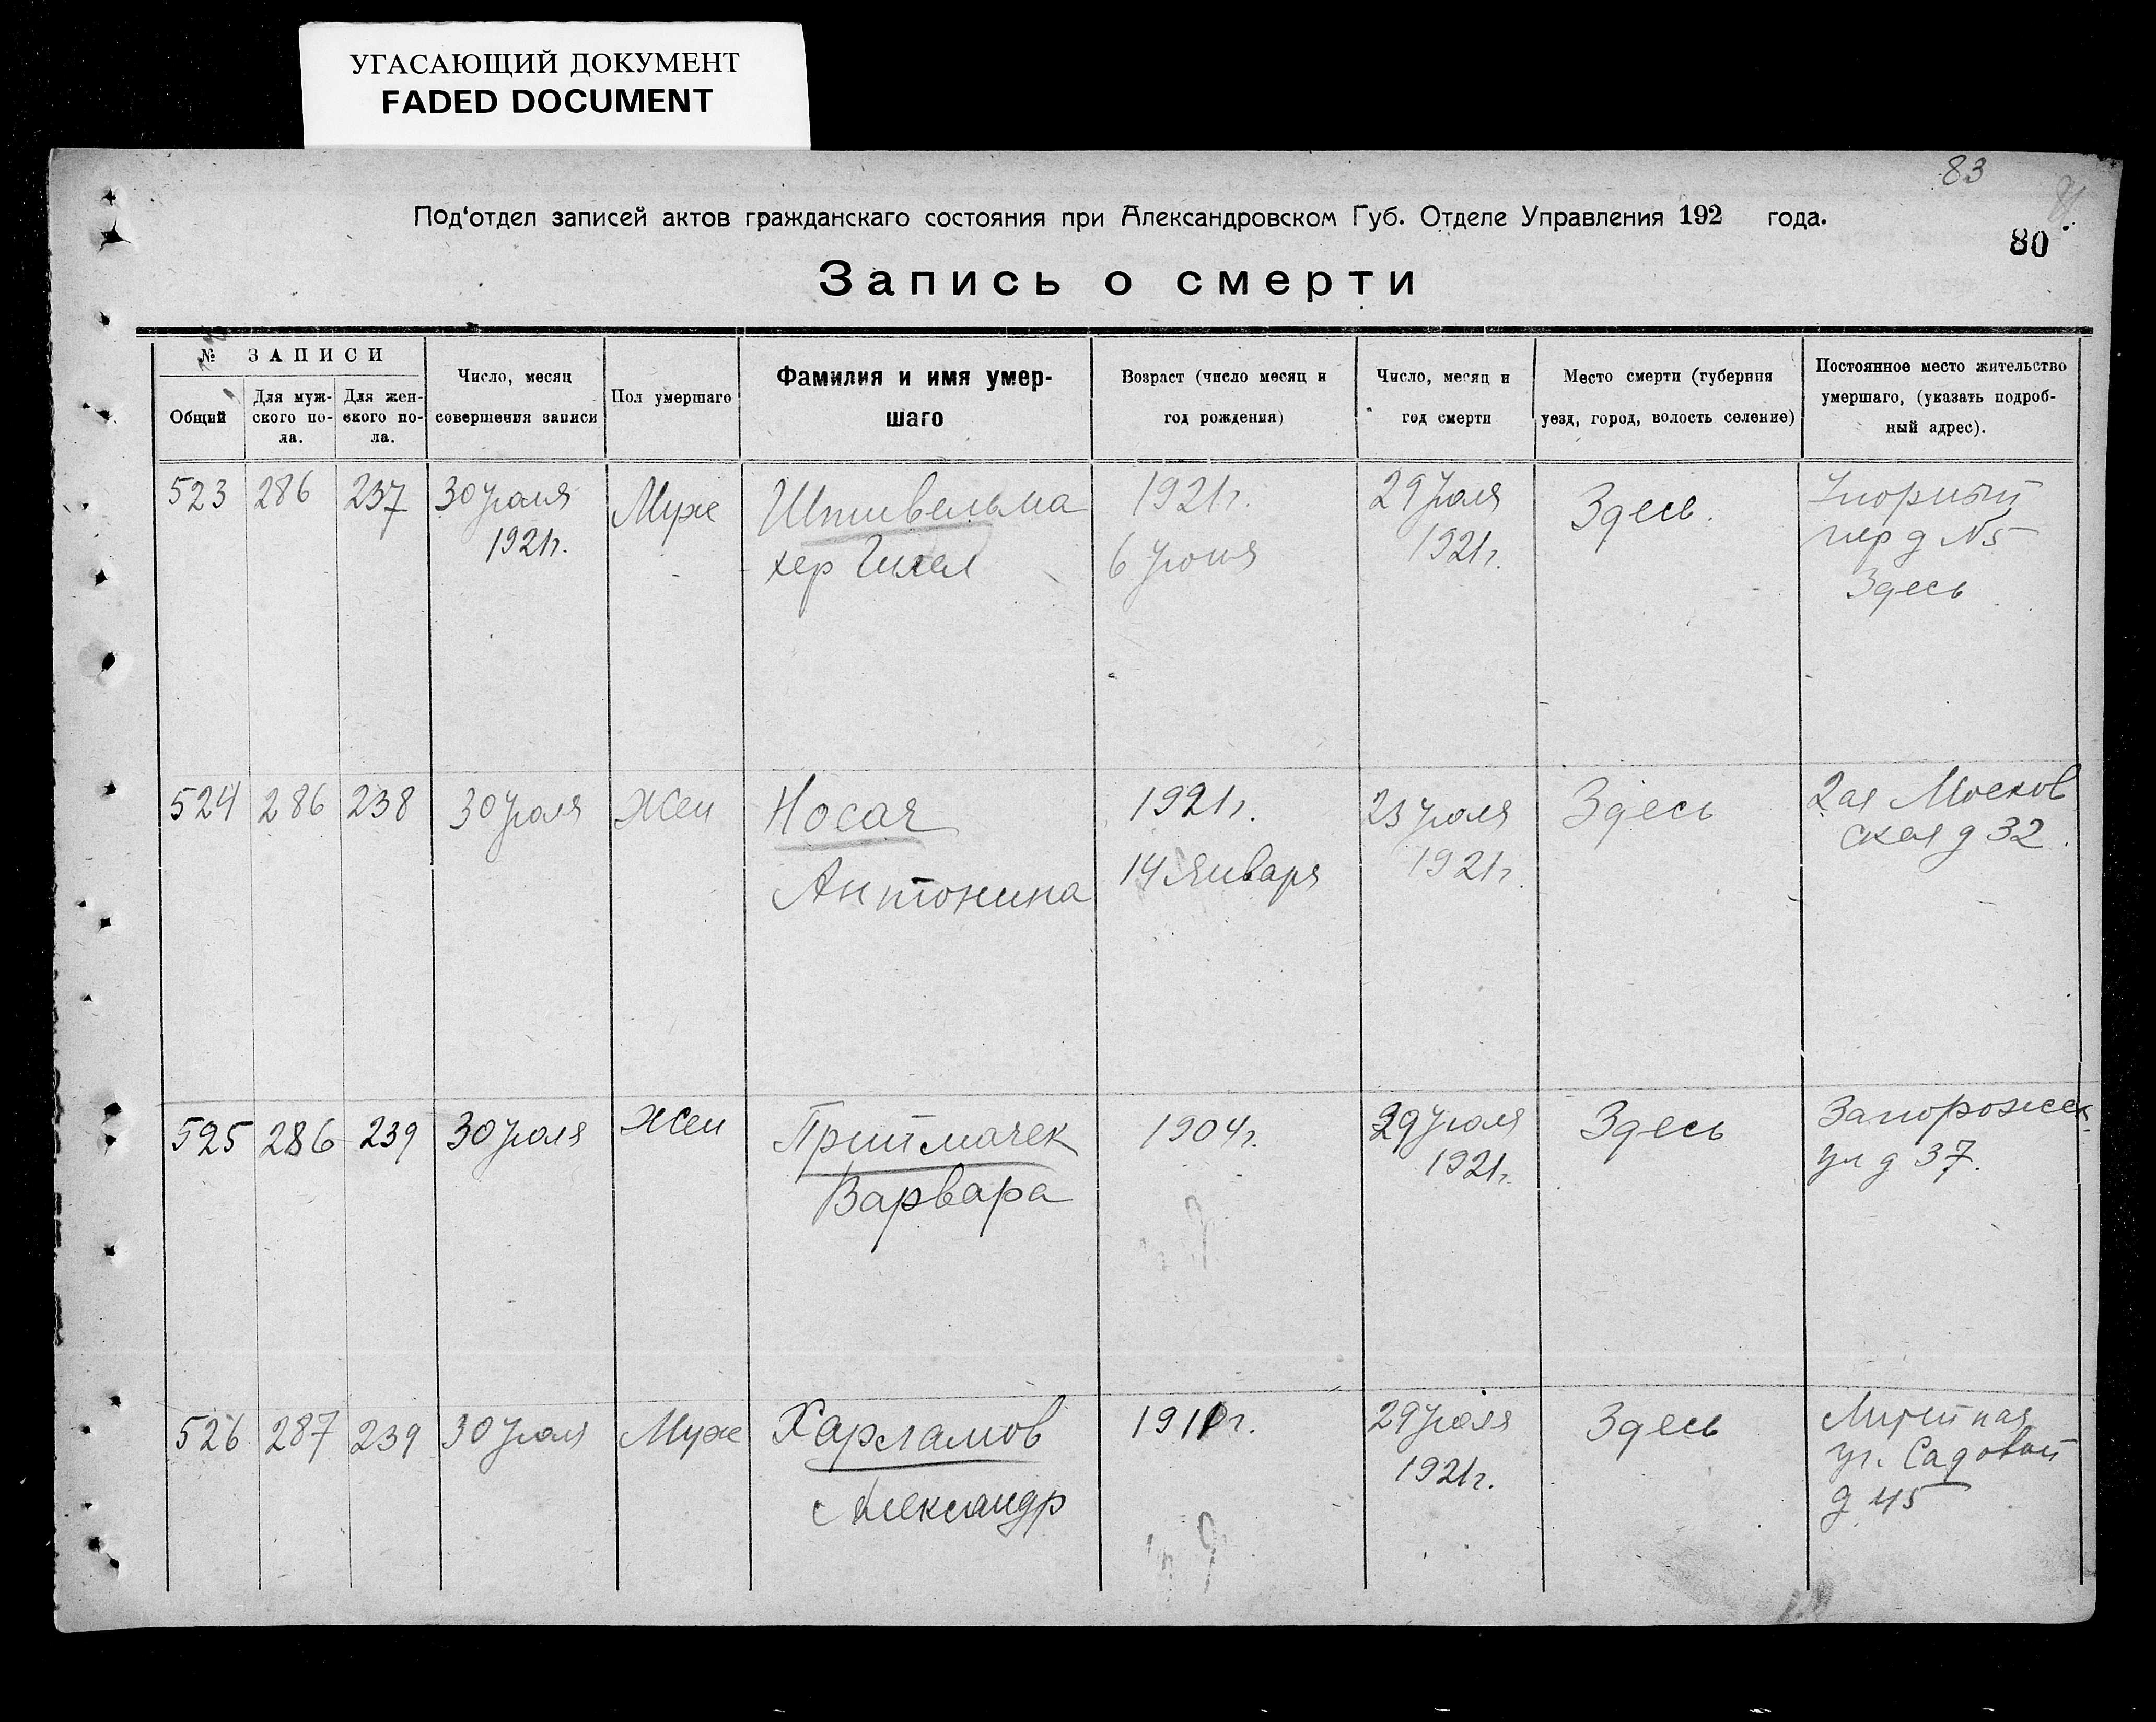 УГАСАЮЩИЙ ДОКУМЕНТ
FADED DOCUMENT
83
80
Под‘отдел записей актов гражданскаго состояния при Александровском Губ. Отделе Управления 192 года.
Запись о смерти
№ ЗАПИСИ
Общий
Для муж-
ского по-
ла.
Для жен-
ского по-
ла.
Число, месяц
совершения записи
Пол умершаго
Фамилия и имя умер-
шаго
Возраст (число месяц и
год рождения)
Число, месяц и
год смерти
Место смерти (губерния
уезд, город, волость селение)
Постоянное место жительство
умершаго, (указать подроб-
ный адрес).
523 286 237 30 Июля
1921г.
Муж
Штивельма
хер
1921г.
6 Июня
29 Июля
1921г.
Здесь.
пер д №5
Здесь
524 286 238 30 Июля
Жен
Носач
Антонина
1921г.
14 Января
Июля
1921г.
Здесь
2ая Москов
ская д 32.
525 286 239 30 Июля
Жен
Притмачек
Варвара
1904г.
29 Июля
1921г.
Здесь
Запорожск.
ул д 37.
526 287 239 30 Июля
Муж
Харламов
Александр
29 Июля
1921г.
Здесь
уг. Садовой
д 45